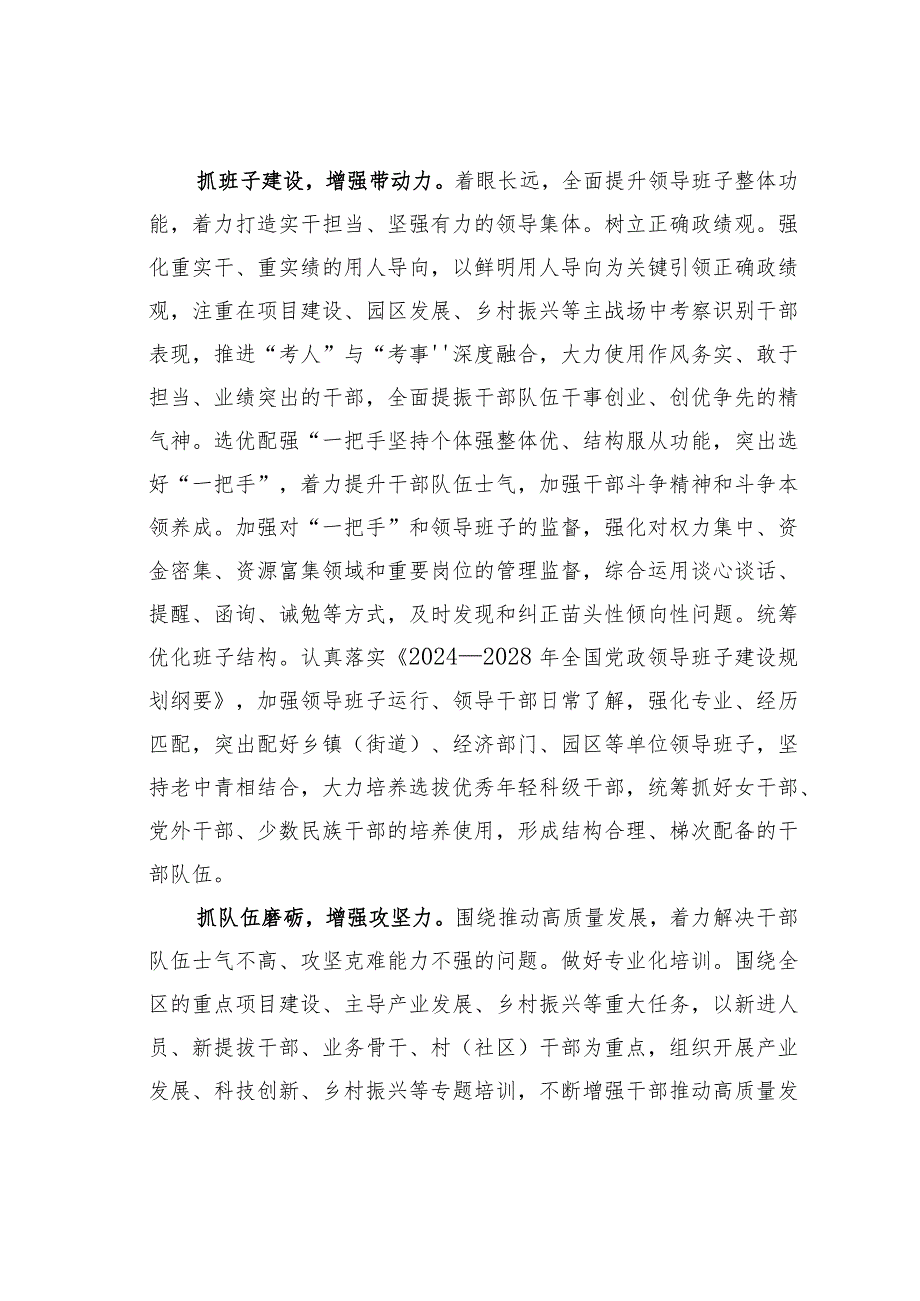 抓班子建设，增强带动力。着眼长远，全面提升领导班子整体功
能，着力打造实干担当、坚强有力的领导集体。树立正确政绩观。强
化重实干、重实绩的用人导向，以鲜明用人导向为关键引领正确政绩
观，注重在项目建设、园区发展、乡村振兴等主战场中考察识别干部
表现，推进“考人”与“考事''深度融合，大力使用作风务实、敢于
担当、业绩突出的干部，全面提振干部队伍干事创业、创优争先的精
气神。选优配强“一把手坚持个体强整体优、结构服从功能，突出选
好“一把手”，着力提升干部队伍士气，加强干部斗争精神和斗争本
领养成。加强对“一把手”和领导班子的监督，强化对权力集中、资
金密集、资源富集领域和重要岗位的管理监督，综合运用谈心谈话、
提醒、函询、诫勉等方式，及时发现和纠正苗头性倾向性问题。统筹
优化班子结构。认真落实《2024—2028 年全国党政领导班子建设规
划纲要》，加强领导班子运行、领导干部日常了解，强化专业、经历
匹配，突出配好乡镇（街道）、经济部门、园区等单位领导班子，坚
持老中青相结合，大力培养选拔优秀年轻科级干部，统筹抓好女干部、
党外干部、少数民族干部的培养使用，形成结构合理、梯次配备的干
部队伍。
抓队伍磨砺，增强攻坚力。围绕推动高质量发展，着力解决干部
队伍士气不高、攻坚克难能力不强的问题。做好专业化培训。围绕全
区的重点项目建设、主导产业发展、乡村振兴等重大任务，以新进人
员、新提拔干部、业务骨干、村（社区）干部为重点，组织开展产业
发展、科技创新、乡村振兴等专题培训，不断增强干部推动高质量发